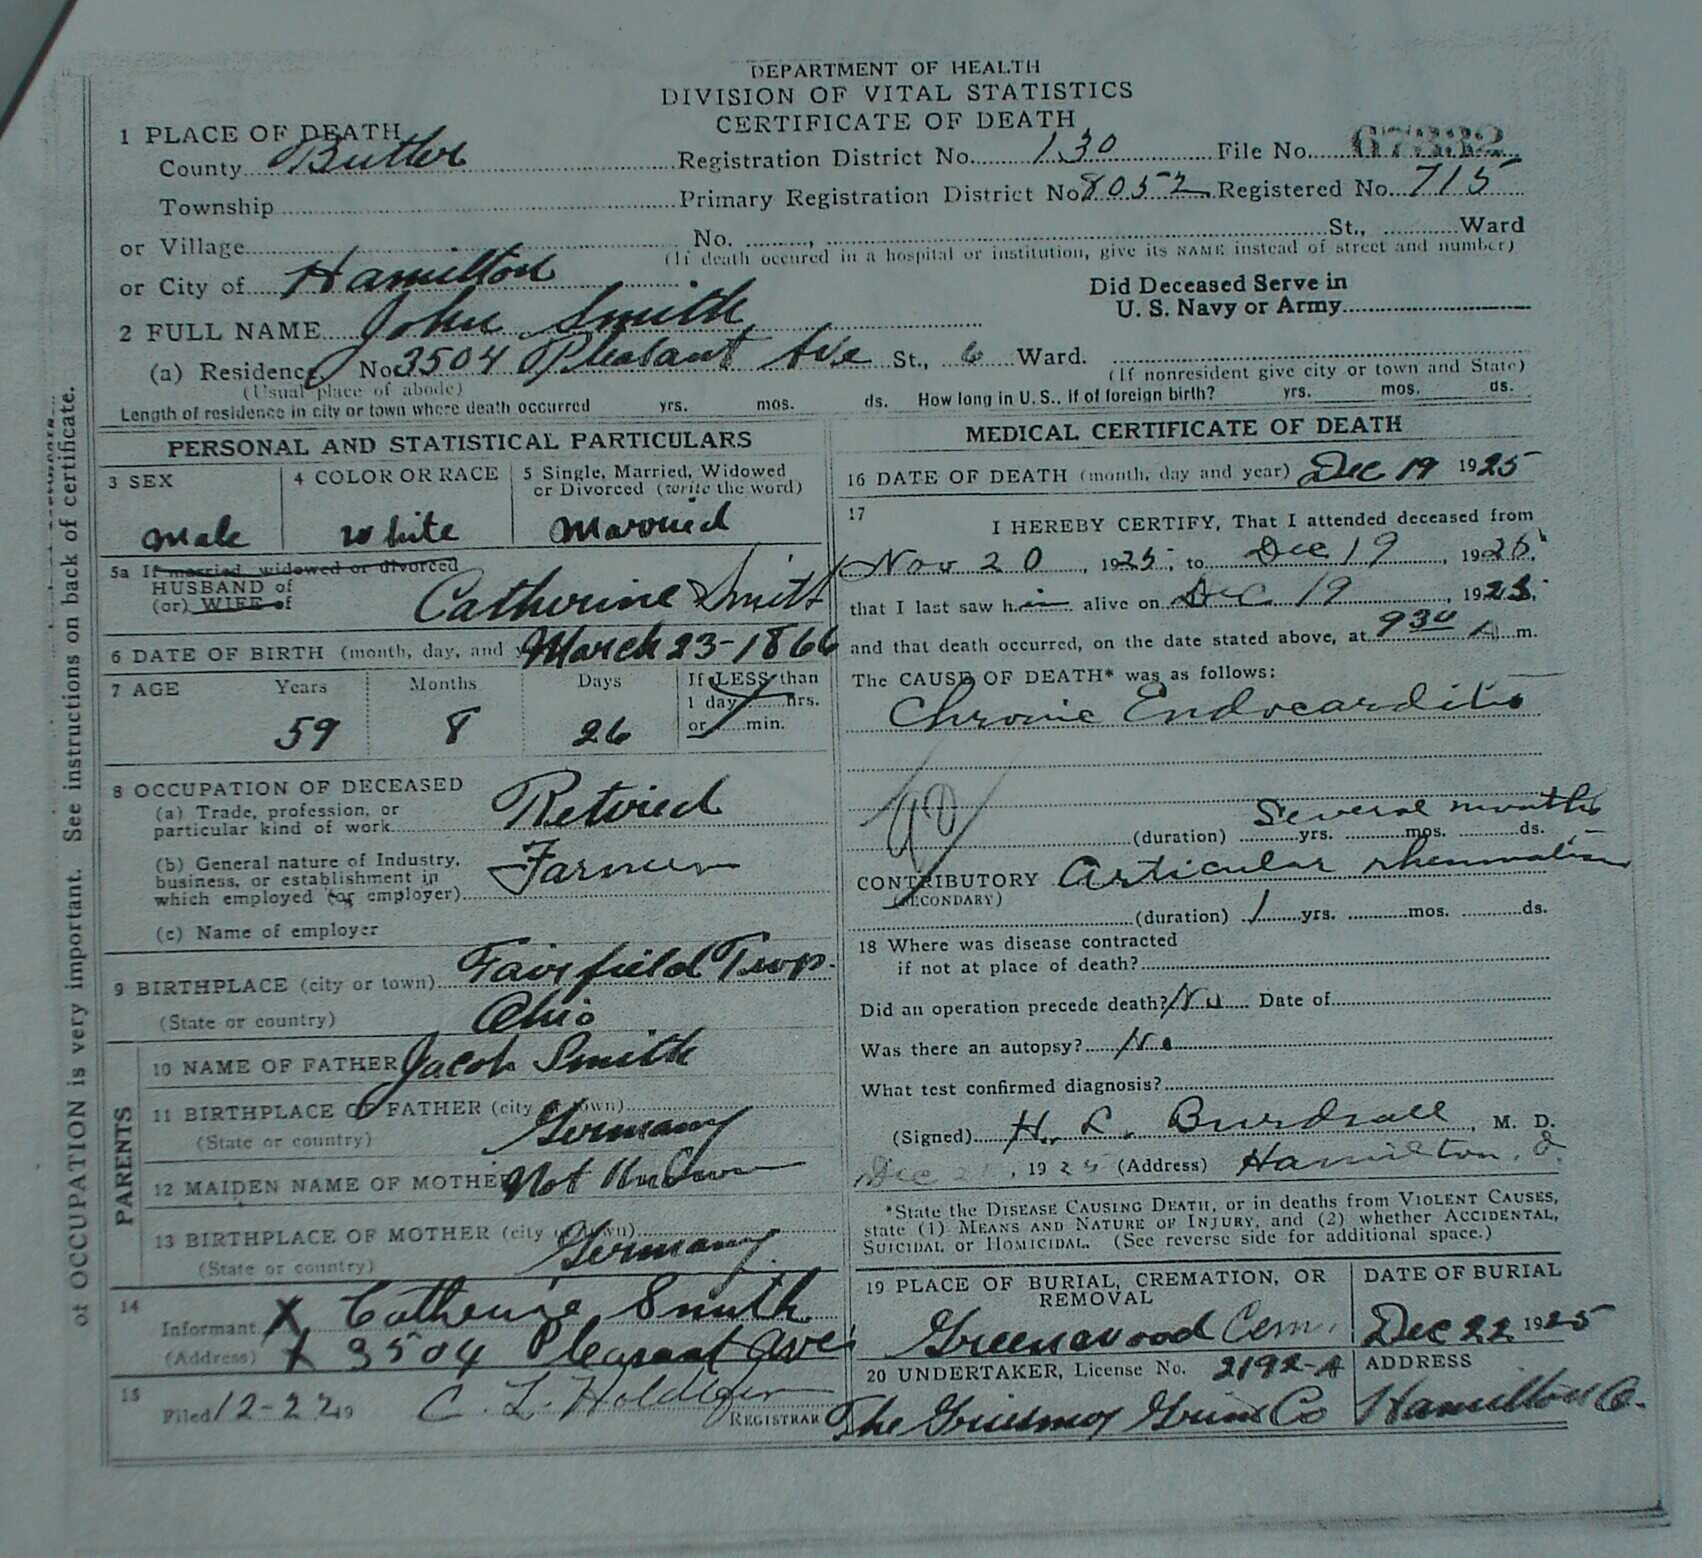 DEPARTMENT OF HEALTH
DIVISION OF VITAL STATISTICS
CERTIFICATE OF DEATH
1 PLACE OF DEATH
County Butler Registration District No. 130 File No.
Township Primary Registration District No 8052 Registered No. 715
or Village No. , St., Ward
(If death occured in a hospital or institution, give its NAME instead of street and number)
or City of Hamilton
Did Deceased Serve in
U. S. Navy or Army
2 FULL NAME John Smith
(a) Residence No 3504 Pleasant Ave St., 6 Ward.
(Usual place of abode) (If nonresident give city or town and State)
Length of residence in city or town where death occurred yrs. mos. ds. How long in U. S., if of foreign birth? yrs. mos. ds.
of OCCUPATION is very important. See instructions on back of certificate.
PERSONAL AND STATISTICAL PARTICULARS
3 SEX 4 COLOR OR RACE 5 Single, Married, Widowed
or Divorced (write the word)
Male White Married
5a If married, widowed or divorced
HUSBAND of
(or) WIFE of Catherine Smith
6 DATE OF BIRTH (month, day, and March 23-1866
7 AGE Years Months Days If LESS than
1 day hrs.
or min.
59 8 26
8 OCCUPATION OF DECEASED
(a) Trade, profession, or
particular kind of work Retired
(b) General nature of Industry,
business, or establishment in
which employed (or employer) Farmer
(c) Name of employer
9 BIRTHPLACE (city or town) Fairfield Twp.
(State or country) Ohio
PARENTS
10 NAME OF FATHER Jacob Smith
11 BIRTHPLACE OF FATHER (city or town)
(State or country) Germany
12 MAIDEN NAME OF MOTHER Not Known
13 BIRTHPLACE OF MOTHER (city or town)
(State or country) Germany
14
Informant X Catherine Smith
(Address) X 3504 Pleasant Ave
15
Filed 12-22 19 C. L.
REGISTRAR
MEDICAL CERTIFICATE OF DEATH
16 DATE OF DEATH (month, day and year) Dec 19 1925
17
I HEREBY CERTIFY, That I attended deceased from
Nov 20, 1925, to Dec 19, 1925,
that I last saw him alive on Dec 19, 1925,
and that death occurred, on the date stated above, at 930 A m.
The CAUSE OF DEATH* was as follows:
Chronic Endocarditis
90
Several months
(duration) yrs. mos. ds.
CONTRIBUTORY Articular rheumatism
(SECONDARY)
(duration) 1 yrs. mos. ds.
18 Where was disease contracted
if not at place of death?
Did an operation precede death? No Date of
Was there an autopsy? No
What test confirmed diagnosis?
(Signed) H. L. Burdsall, M. D.
Dec , 1925 (Address) Hamilton, O.
*State the DISEASE CAUSING DEATH, or in deaths from VIOLENT CAUSES,
state (1) MEANS AND NATURE OF INJURY, and (2) whether ACCIDENTAL,
SUICIDAL or HOMICIDAL. (See reverse side for additional space.)
19 PLACE OF BURIAL, CREMATION, OR
REMOVAL
Greenwood Cem.
DATE OF BURIAL
Dec 22 1925
20 UNDERTAKER, License No. 2192-A
The Co
ADDRESS
Hamilton O.